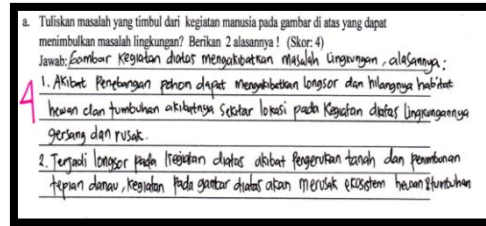 a. Tuliskan masalah yang timbul dari kegiatan manusia pada gambar di atas yang dapat
menimbulkan masalah lingkungan? Berikan 2 alasannya ! (Skor: 4)
Jawab: Gambar kegiatan diatas mengakibatkan masalah lingkungan, alasannya :
1. Akibat Penebangan pohon dapat mengakibatkan longsor dan hilangnya habitat
4
hewan dan tumbuhan akibatnya sekitar lokasi pada kegiatan diatas lingkungannya
gersang dan rusak.
2. Terjadi longsor pada kegiatan diatas akibat pengerukan tanah dan penimbunan
tepian danau, kegiatan pada gambar diatas akan merusak ekosistem hewan & tumbuhan